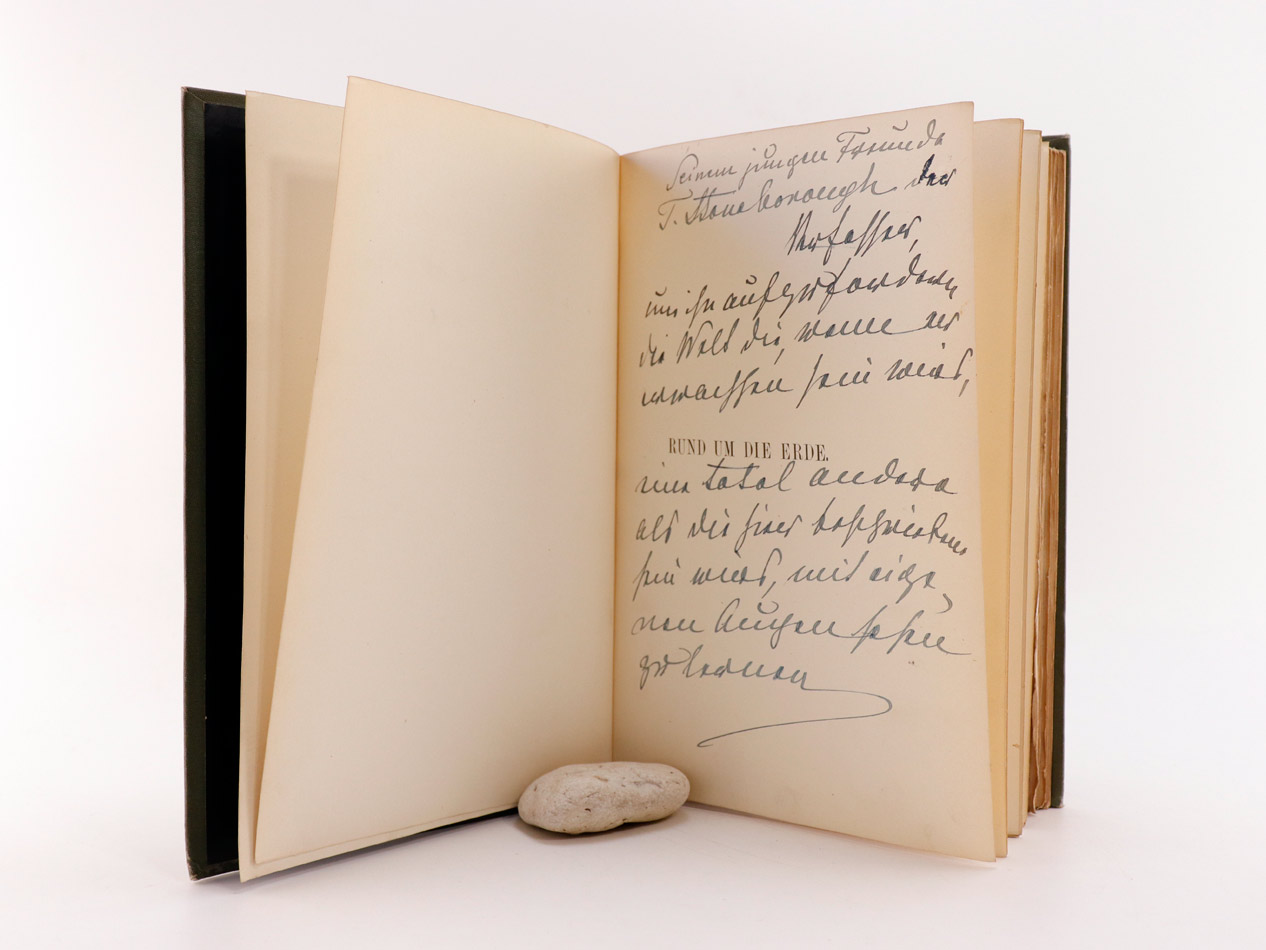 Seinem jungen Freunde
T. Stoneborough der
Verfasser,
um ihn aufzufordern
die Welt die, wenn er
erwachsen sein wird,
RUND UM DIE ERDE.
eine total andere
als die hier beschriebene
sein wird, mit eige
nen Augen sehen
zu lernen